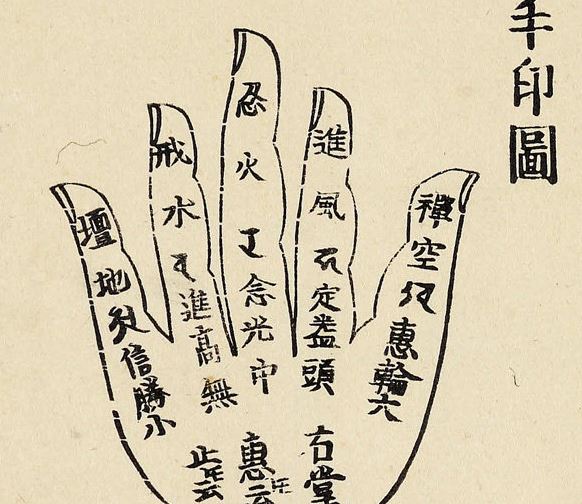 手印圖
禪空惠輪六
進風定盖頭右掌
忍火念光中惠
戒水進高無止
壇地信勝小